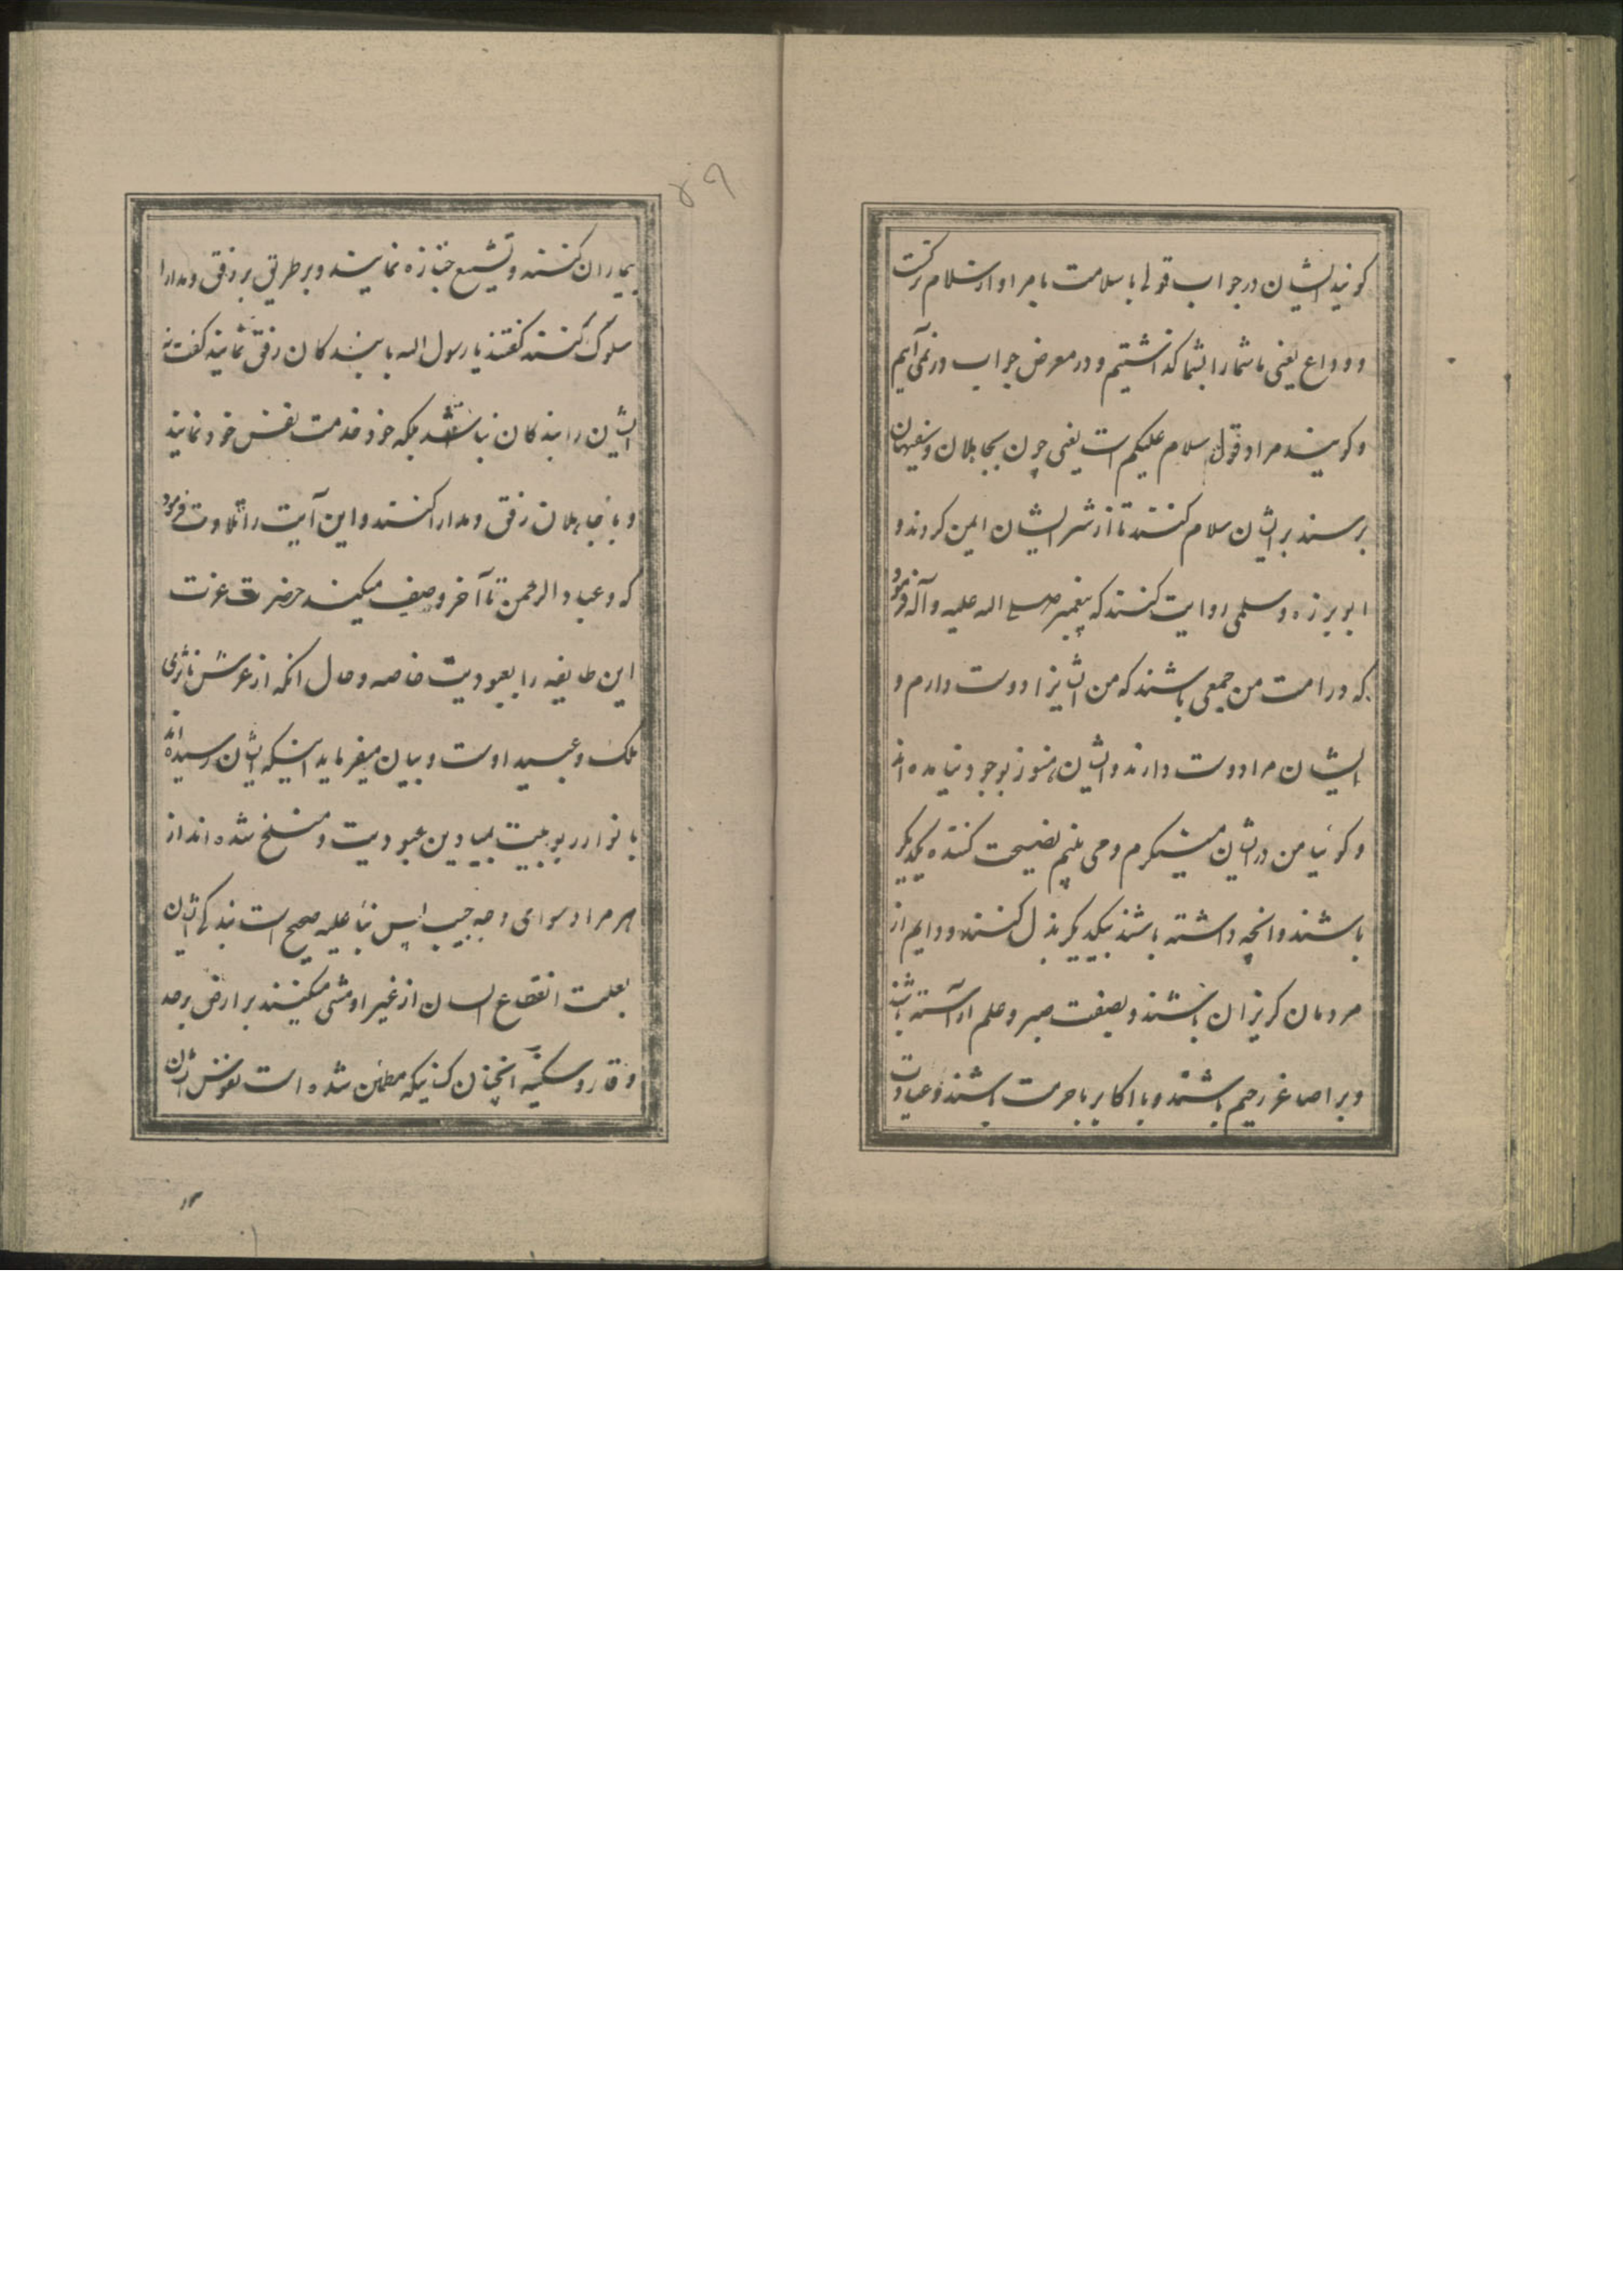 کویند ایشان در جواب قولی با سلامت یا مراد از سلام ترکت
و وداع یعنی ما شما را بشما کذاشتیم و در معرض جواب در نمی آییم
و کویند مراد قول سلام علیکم است یعنی چون بجاهلان و سفیهان
برسند بر ایشان سلام کنند تا از شر ایشان ایمن کردند و
ابو برزه و سلمی روایت کنند که پیغمبر صلی الله علیه و آله فرمود
که در امت من جمعی باشند که من ایشانرا دوست دارم و
ایشان مرا دوست دارند و ایشان هنوز بوجود نیامده اند
و کوئیا من در ایشان مینکرم و می بینم نصیحت کننده یکدیکر
باشند و انچه داشته باشند بیکدیکر بذل کنند و دایم از
مردمان کریزان باشند و بصفت صبر و حلم آراسته باشند
و بر اصاغر رحیم باشند و با اکابر با حرمت باشند و عیادت
۴۹
بیماران کنند و تشییع جنازه نمایند و بر طریق بر و رفق و مدارا
سلوک کنند کفتند یا رسول الله با بندکان رفق نمایند کفت نه
ایشان را بندکان نباشند بلکه خود خدمت نفس خود نمایند
و با جاهلان رفق و مدارا کنند و این آیت را تلاوت فرمود
که و عباد الرحمن تا آخر وصف میکند حضرت عزت
این طایفه را بعبودیت خاصه و حال انکه از عرش تا ثری
ملک و عبید اوست و بیان میفرماید اینکه ایشان رسیده اند
با نوار ربوبیت بمیادین عبودیت و منسلخ شده اند از
هر مراد سوای وجه حبیب پس بنا علیه صحیح است بندکی ایشان
بعلت انقطاع ایشان از غیر او مشی میکنند بر ارض برحد
وقار و سکینه انچنان کسانیکه مطمئن شده است نفوس ایشان